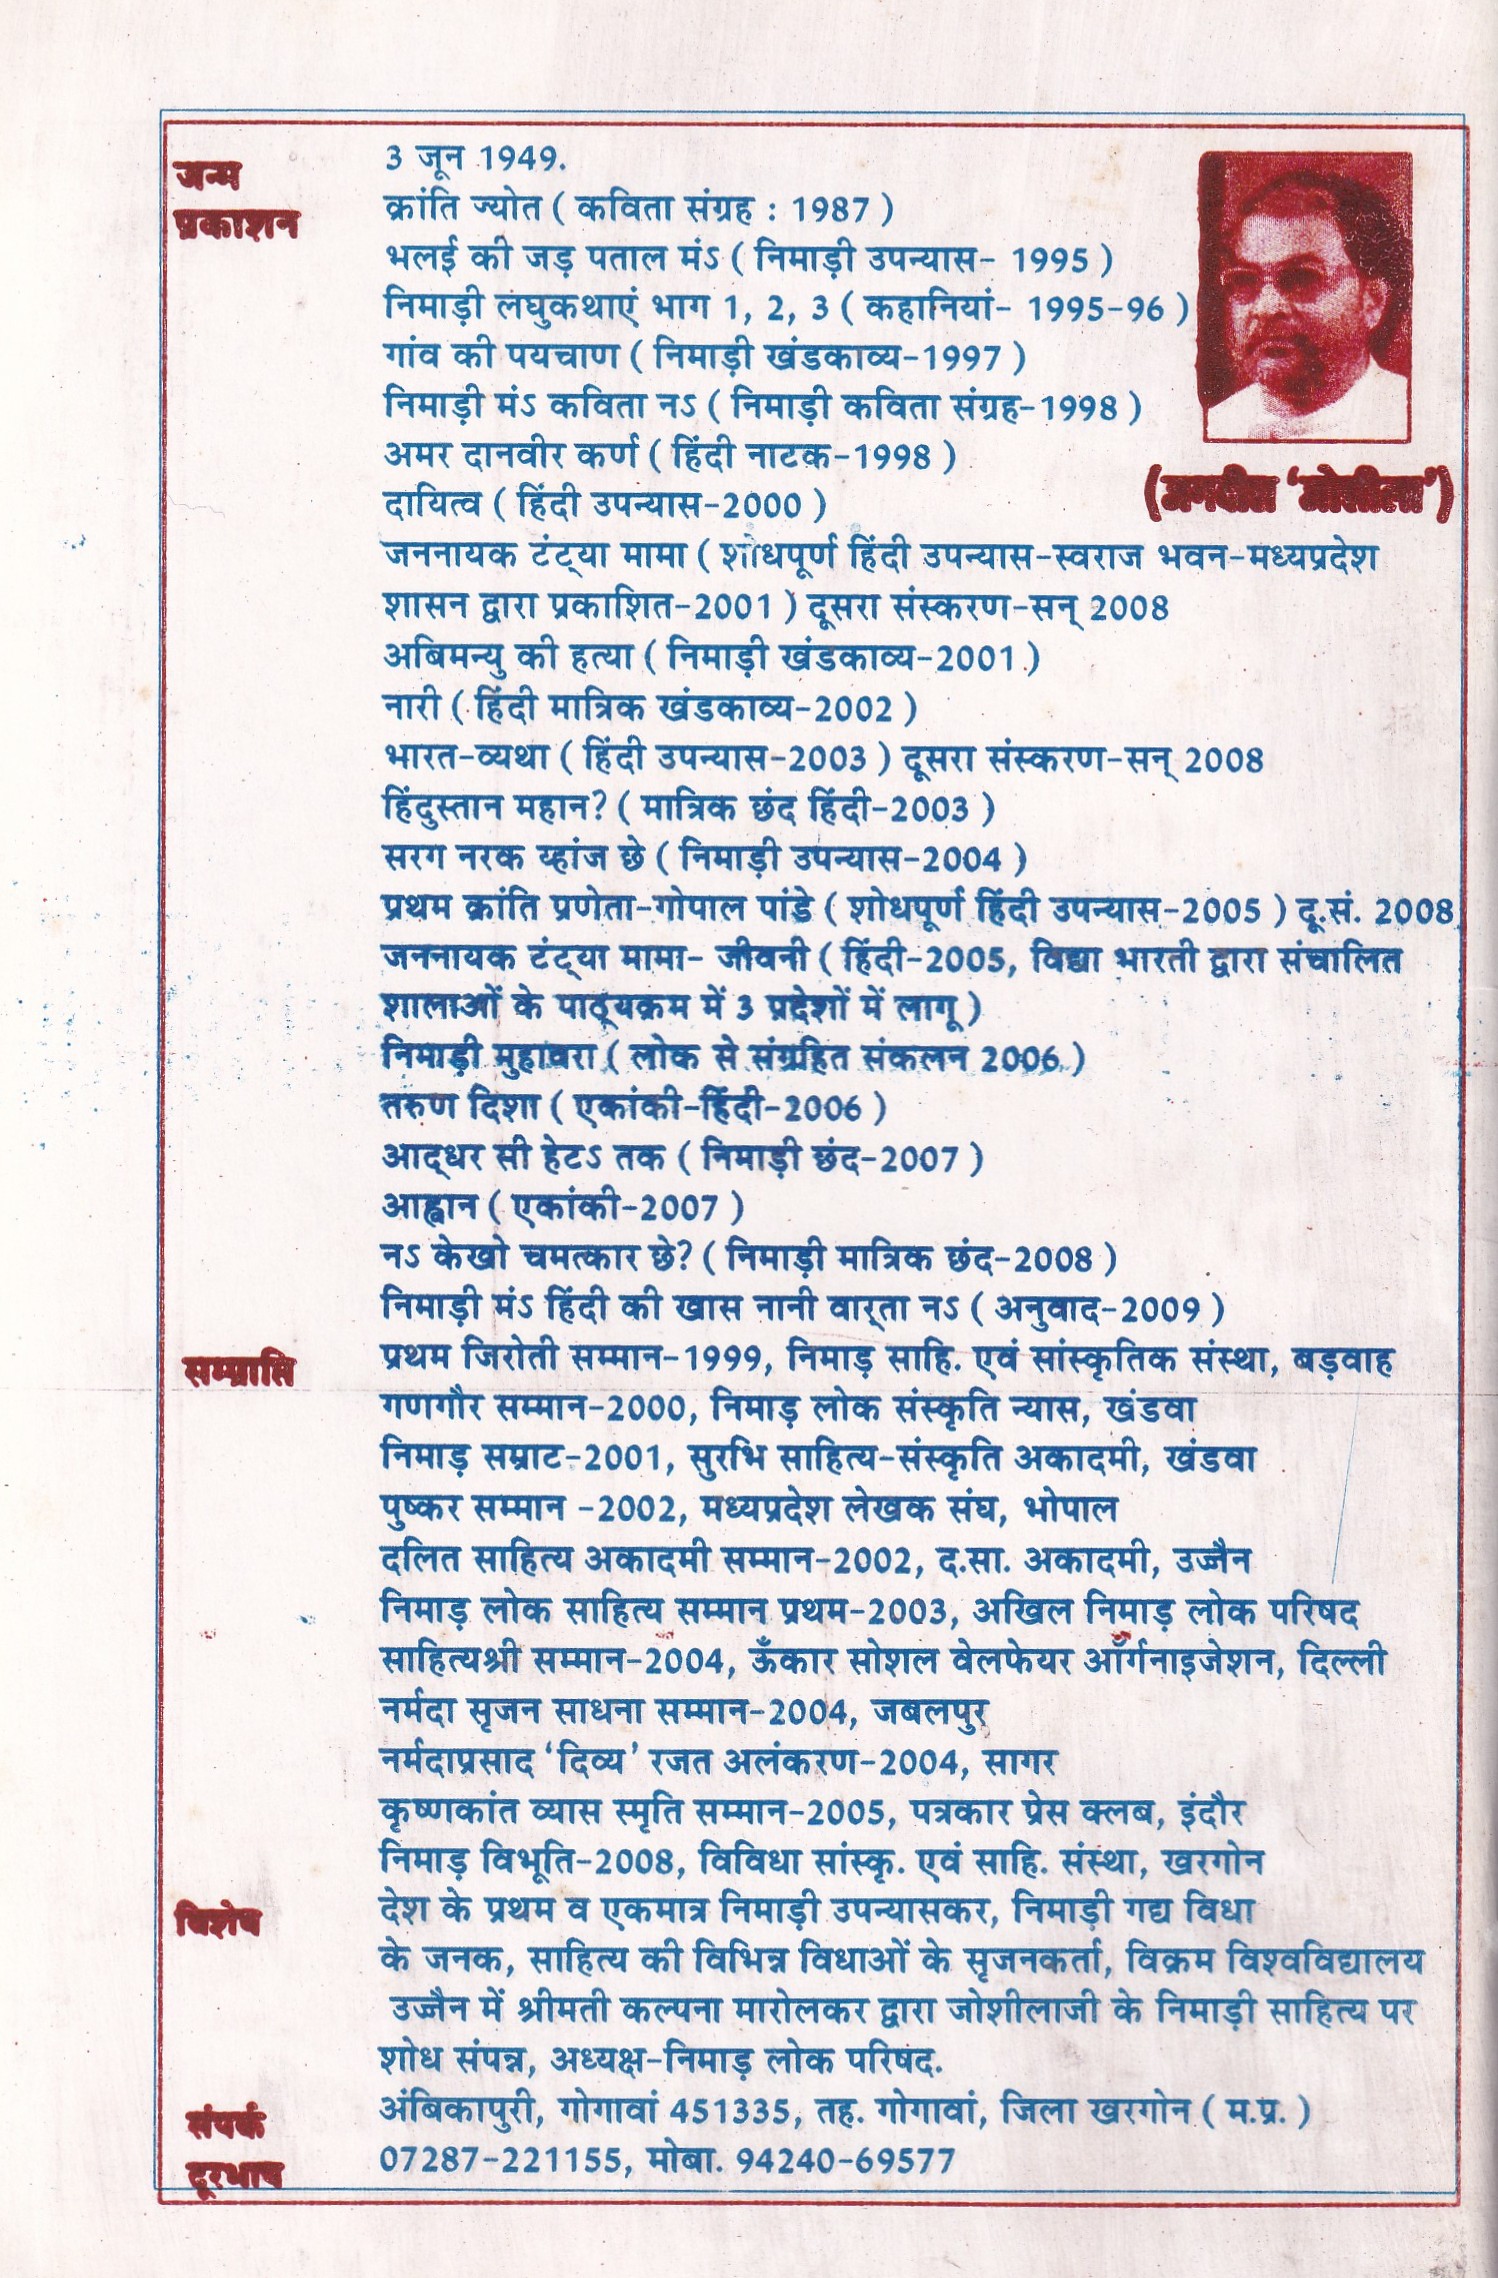 जन्म 3 जून 1949.
प्रकाशन क्रांति ज्योत ( कविता संग्रह : 1987 )
भलई की जड़ पताल मंऽ ( निमाड़ी उपन्यास- 1995 )
निमाड़ी लघुकथाएं भाग 1, 2, 3 ( कहानियां- 1995-96 )
गांव की पयचाण ( निमाड़ी खंडकाव्य-1997 )
निमाड़ी मंऽ कविता नऽ ( निमाड़ी कविता संग्रह-1998 )
अमर दानवीर कर्ण ( हिंदी नाटक-1998 )
(जगदीश 'जोशीला')
दायित्व ( हिंदी उपन्यास-2000 )
जननायक टंट्या मामा ( शोधपूर्ण हिंदी उपन्यास-स्वराज भवन-मध्यप्रदेश
शासन द्वारा प्रकाशित-2001 ) दूसरा संस्करण-सन् 2008
अबिमन्यु की हत्या ( निमाड़ी खंडकाव्य-2001 )
नारी ( हिंदी मात्रिक खंडकाव्य-2002 )
भारत-व्यथा ( हिंदी उपन्यास-2003 ) दूसरा संस्करण-सन् 2008
हिंदुस्तान महान? ( मात्रिक छंद हिंदी-2003 )
सरग नरक य्हांज छे ( निमाड़ी उपन्यास-2004 )
प्रथम क्रांति प्रणेता-गोपाल पांडे ( शोधपूर्ण हिंदी उपन्यास-2005 ) दू.सं. 2008
जननायक टंट्या मामा- जीवनी ( हिंदी-2005, विद्या भारती द्वारा संचालित
शालाओं के पाठ्यक्रम में 3 प्रदेशों में लागू )
निमाड़ी मुहावरा ( लोक से संग्रहित संकलन 2006 )
तरुण दिशा ( एकांकी-हिंदी-2006 )
आद्धर सी हेटऽ तक ( निमाड़ी छंद-2007 )
आह्वान ( एकांकी-2007 )
नऽ केखो चमत्कार छे? ( निमाड़ी मात्रिक छंद-2008 )
निमाड़ी मंऽ हिंदी की खास नानी वार्‌ता नऽ ( अनुवाद-2009 )
सम्प्राप्ति प्रथम जिरोती सम्मान-1999, निमाड़ साहि. एवं सांस्कृतिक संस्था, बड़वाह
गणगौर सम्मान-2000, निमाड़ लोक संस्कृति न्यास, खंडवा
निमाड़ सम्राट-2001, सुरभि साहित्य-संस्कृति अकादमी, खंडवा
पुष्कर सम्मान -2002, मध्यप्रदेश लेखक संघ, भोपाल
दलित साहित्य अकादमी सम्मान-2002, द.सा. अकादमी, उज्जैन
निमाड़ लोक साहित्य सम्मान प्रथम-2003, अखिल निमाड़ लोक परिषद
साहित्यश्री सम्मान-2004, ऊँकार सोशल वेलफेयर ऑर्गनाइजेशन, दिल्ली
नर्मदा सृजन साधना सम्मान-2004, जबलपुर
नर्मदाप्रसाद 'दिव्य' रजत अलंकरण-2004, सागर
कृष्णकांत व्यास स्मृति सम्मान-2005, पत्रकार प्रेस क्लब, इंदौर
निमाड़ विभूति-2008, विविधा सांस्कृ. एवं साहि. संस्था, खरगोन
विशेष देश के प्रथम व एकमात्र निमाड़ी उपन्यासकर, निमाड़ी गद्य विधा
के जनक, साहित्य की विभिन्न विधाओं के सृजनकर्ता, विक्रम विश्वविद्यालय
उज्जैन में श्रीमती कल्पना मारोलकर द्वारा जोशीलाजी के निमाड़ी साहित्य पर
शोध संपन्न, अध्यक्ष-निमाड़ लोक परिषद.
संपर्क अंबिकापुरी, गोगावां 451335, तह. गोगावां, जिला खरगोन ( म.प्र. )
दूरभाष 07287-221155, मोबा. 94240-69577